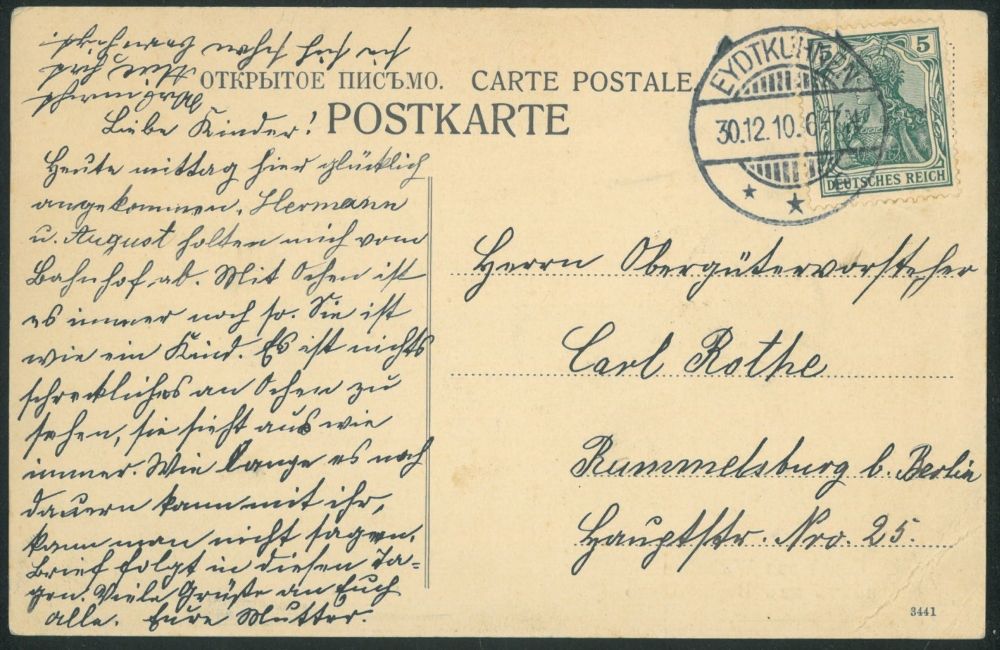 ОТКРЫТОЕ ПИСЬМО. CARTE POSTALE.
POSTKARTE
EYDTKUHNEN
30.12.10. 6-7 N
5
DEUTSCHES REICH
Liebe Kinder!
Heute mittag hier glücklich
angekommen. Hermann
u. August holten mich vom
Bahnhof ab. Mit Ochen ist
es immer noch so. Sie ist
wie ein Kind. Es ist nichts
schreckliches an Ochen zu
sehen, sie sieht aus wie
immer. Wie lange es noch
dauern kann mit ihr,
kann man nicht sagen.
Brief folgt in diesen Ta-
gen. Viele Grüße an Euch
alle. Eure Mutter.
Herrn Obergütervorsteher
Carl Rothe
Rummelsburg b. Berlin
Hauptstr. Nro. 25.
3441